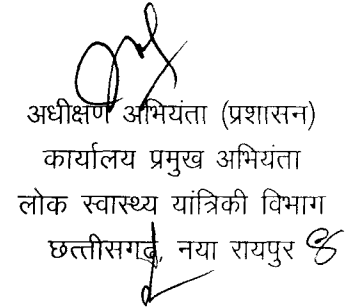 अधीक्षण अभियंता (प्रशासन)
कार्यालय प्रमुख अभियंता
लोक स्वास्थ्य यांत्रिकी विभाग
छत्तीसगढ़, नया रायपुर